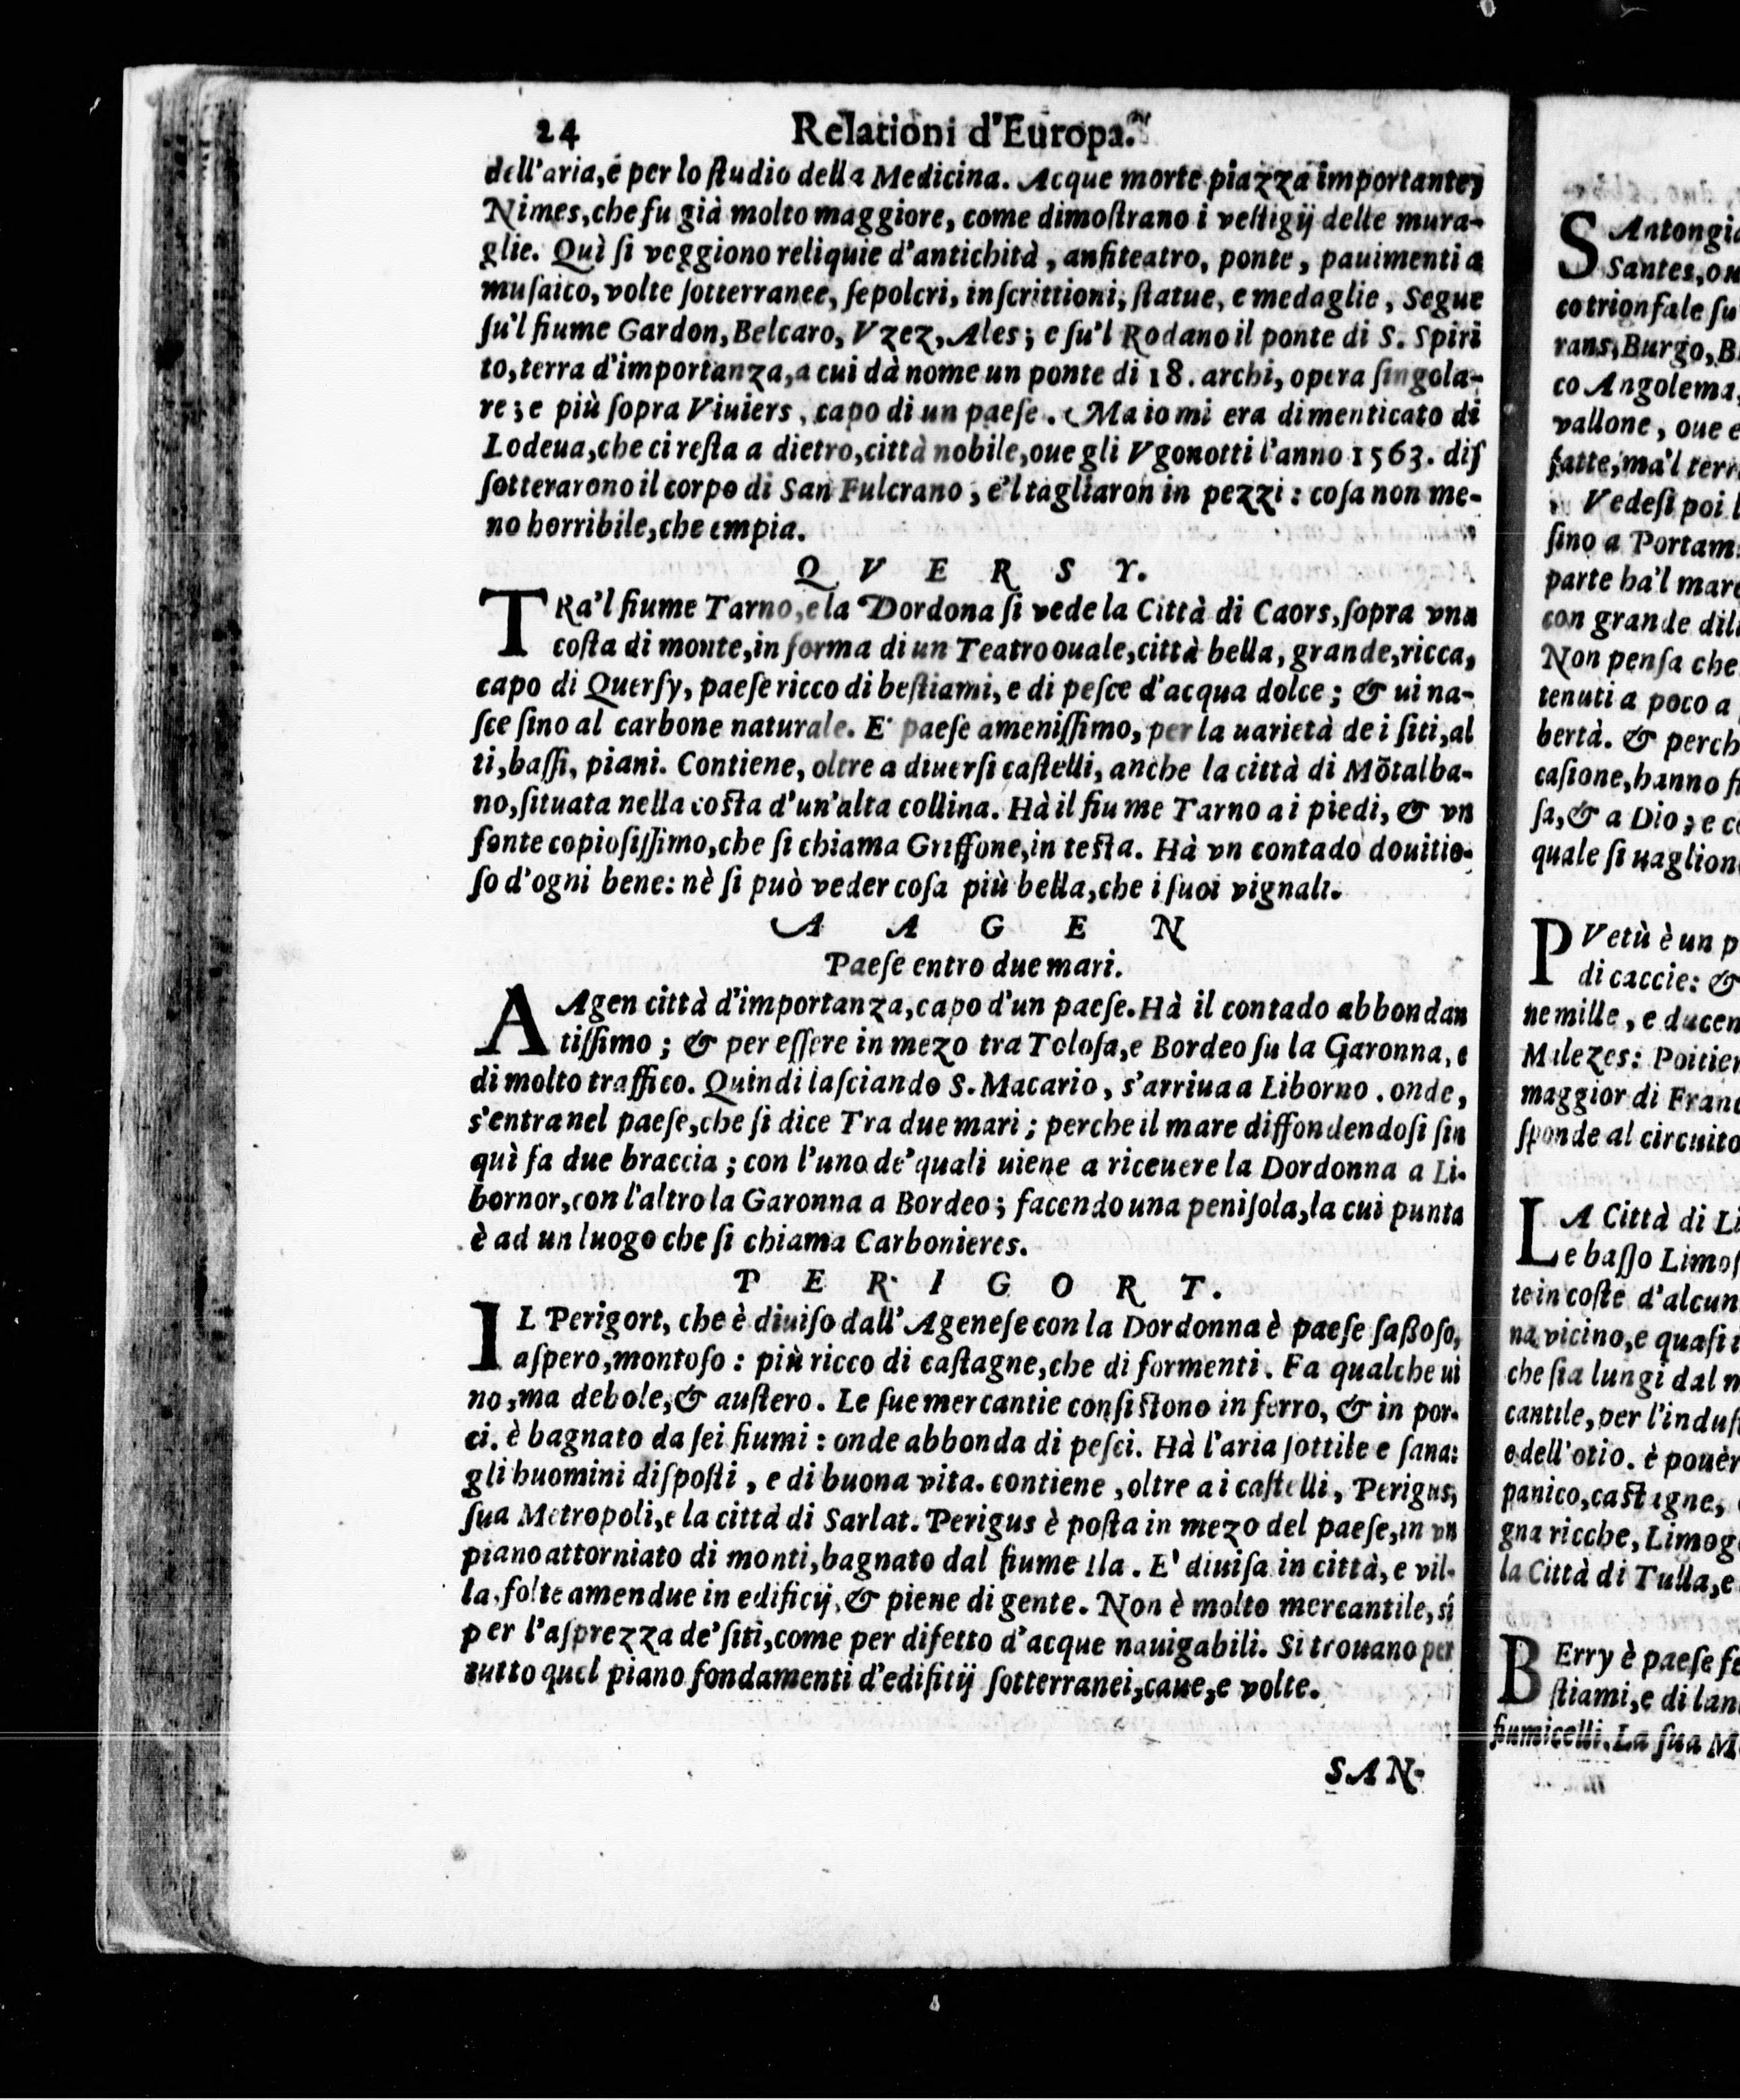 24 Relationi d'Europa.
dell'aria, e per lo ſtudio della Medicina. Acque morte piazza importante,
Nimes, che fu già molto maggiore, come dimoſtrano i veſtigij delle mura-
glie. Quì ſi veggiono reliquie d'antichità, anfiteatro, ponte, pauimenti a
muſaico, volte ſotterranee, ſepolcri, inſcrittioni, ſtatue, e medaglie, Segue
ſu'l fiume Gardon, Belcaro, Vzez, Ales; e ſu'l Rodano il ponte di S. Spiri
to, terra d'importanza, a cui dà nome un ponte di 18. archi, opera ſingola-
re; e più ſopra Viuiers, capo di un paeſe. Ma io mi era dimenticato di
Lodeua, che ci reſta a dietro, città nobile, oue gli Vgonotti l'anno 1563. diſ
ſotterarono il corpo di San Fulcrano, e'l tagliaron in pezzi: coſa non me-
no horribile, che empia.
Q V E R S Y.
TRa'l fiume Tarno, e la Dordona ſi vede la Città di Caors, ſopra vna
coſta di monte, in forma di un Teatro ouale, città bella, grande, ricca,
capo di Querſy, paeſe ricco di beſtiami, e di peſce d'acqua dolce; & ui na-
ſce ſino al carbone naturale. E' paeſe ameniſſimo, per la uarietà de i ſiti, al
ti, baſſi, piani. Contiene, oltre a diuerſi caſtelli, anche la città di Mōtalba-
no, ſituata nella coſta d'un'alta collina. Hà il fiume Tarno a i piedi, & vn
fonte copioſiſſimo, che ſi chiama Griffone, in teſta. Hà vn contado douitio-
ſo d'ogni bene: nè ſi può veder coſa più bella, che i ſuoi vignali.
A A G E N
Paeſe entro due mari.
A Agen città d'importanza, capo d'un paeſe. Hà il contado abbondan
tiſſimo; & per eſſere in mezo tra Toloſa, e Bordeo ſu la Garonna, e
di molto traffico. Quindi laſciando S. Macario, s'arriua a Liborno. onde,
s'entra nel paeſe, che ſi dice Tra due mari; perche il mare diffondendoſi ſin
quì fa due braccia; con l'uno de' quali uiene a riceuere la Dordonna a Li-
bornor, con l'altro la Garonna a Bordeo; facendo una peniſola, la cui punta
è ad un luogo che ſi chiama Carbonieres.
P E R I G O R T.
IL Perigort, che è diuiſo dall'Ageneſe con la Dordonna è paeſe ſaßoſo,
aſpero, montoſo: più ricco di caſtagne, che di formenti. Fa qualche ui
no, ma debole, & auſtero. Le ſue mercantie conſiſtono in ferro, & in por-
ci. è bagnato da ſei fiumi: onde abbonda di peſci. Hà l'aria ſottile e ſana:
gli huomini diſpoſti, e di buona vita. contiene, oltre a i caſtelli, Perigus,
ſua Metropoli, e la città di Sarlat. Perigus è poſta in mezo del paeſe, in vn
piano attorniato di monti, bagnato dal fiume Ila. E' diuiſa in città, e vil-
la, folte amendue in edificij, & piene di gente. Non è molto mercantile, sì
per l'aſprezza de' ſiti, come per difetto d'acque nauigabili. Si trouano per
tutto quel piano fondamenti d'edifitij ſotterranei, caue, e volte.
SAN-
SAntongia
Santes, ou
co trionfale ſu
rans, Burgo, B
co Angolema,
vallone, oue e
fatte, ma'l terr
Vedeſi poi l
ſino a Portam
parte ha'l mare
con grande dili
Non penſa che
tenuti a poco a
bertà. & perch
caſione, hanno fi
ſa, & a Dio; e co
quale ſi uaglion
PVetù è un p
di caccie: &
ne mille, e ducen
Milezes: Poitier
maggior di Franc
ſponde al circuito
LA Città di Li
e baſſo Limoſ
te in coſte d'alcun
na vicino, e quaſi i
che ſia lungi dal m
cantile, per l'induſt
e dell'otio. è pouèr
panico, caſtagne,
gna ricche, Limog
la Città di Tulla, e
BErry è paeſe fe
ſtiami, e di lan
fiumicelli. La ſua M